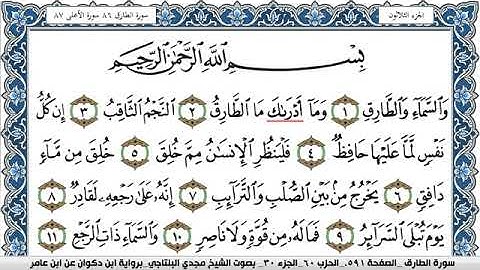 الجزء الثلاثون
سورة الطارق ٨٦ سورة الأعلى ٨٧
بِسْمِ اللَّهِ الرَّحْمَٰنِ الرَّحِيمِ
وَالسَّمَاءِ وَالطَّارِقِ ١ وَمَا أَدْرَىٰكَ مَا الطَّارِقُ ٢ النَّجْمُ الثَّاقِبُ ٣ إِن كُلُّ
نَفْسٍ لَّمَّا عَلَيْهَا حَافِظٌ ٤ فَلْيَنظُرِ الْإِنسَانُ مِمَّ خُلِقَ ٥ خُلِقَ مِن مَّاءٍ
دَافِقٍ ٦ يَخْرُجُ مِن بَيْنِ الصُّلْبِ وَالتَّرَائِبِ ٧ إِنَّهُ عَلَىٰ رَجْعِهِ لَقَادِرٌ ٨
يَوْمَ تُبْلَى السَّرَائِرُ ٩ فَمَا لَهُ مِن قُوَّةٍ وَلَا نَاصِرٍ ١٠ وَالسَّمَاءِ ذَاتِ الرَّجْعِ ١١
سورة الطارق _ الصفحة ٥٩١_ الحزب ٦٠_ الجزء ٣٠_ بصوت الشيخ مجدي البلتاجي_ برواية ابن ذكوان عن ابن عامر